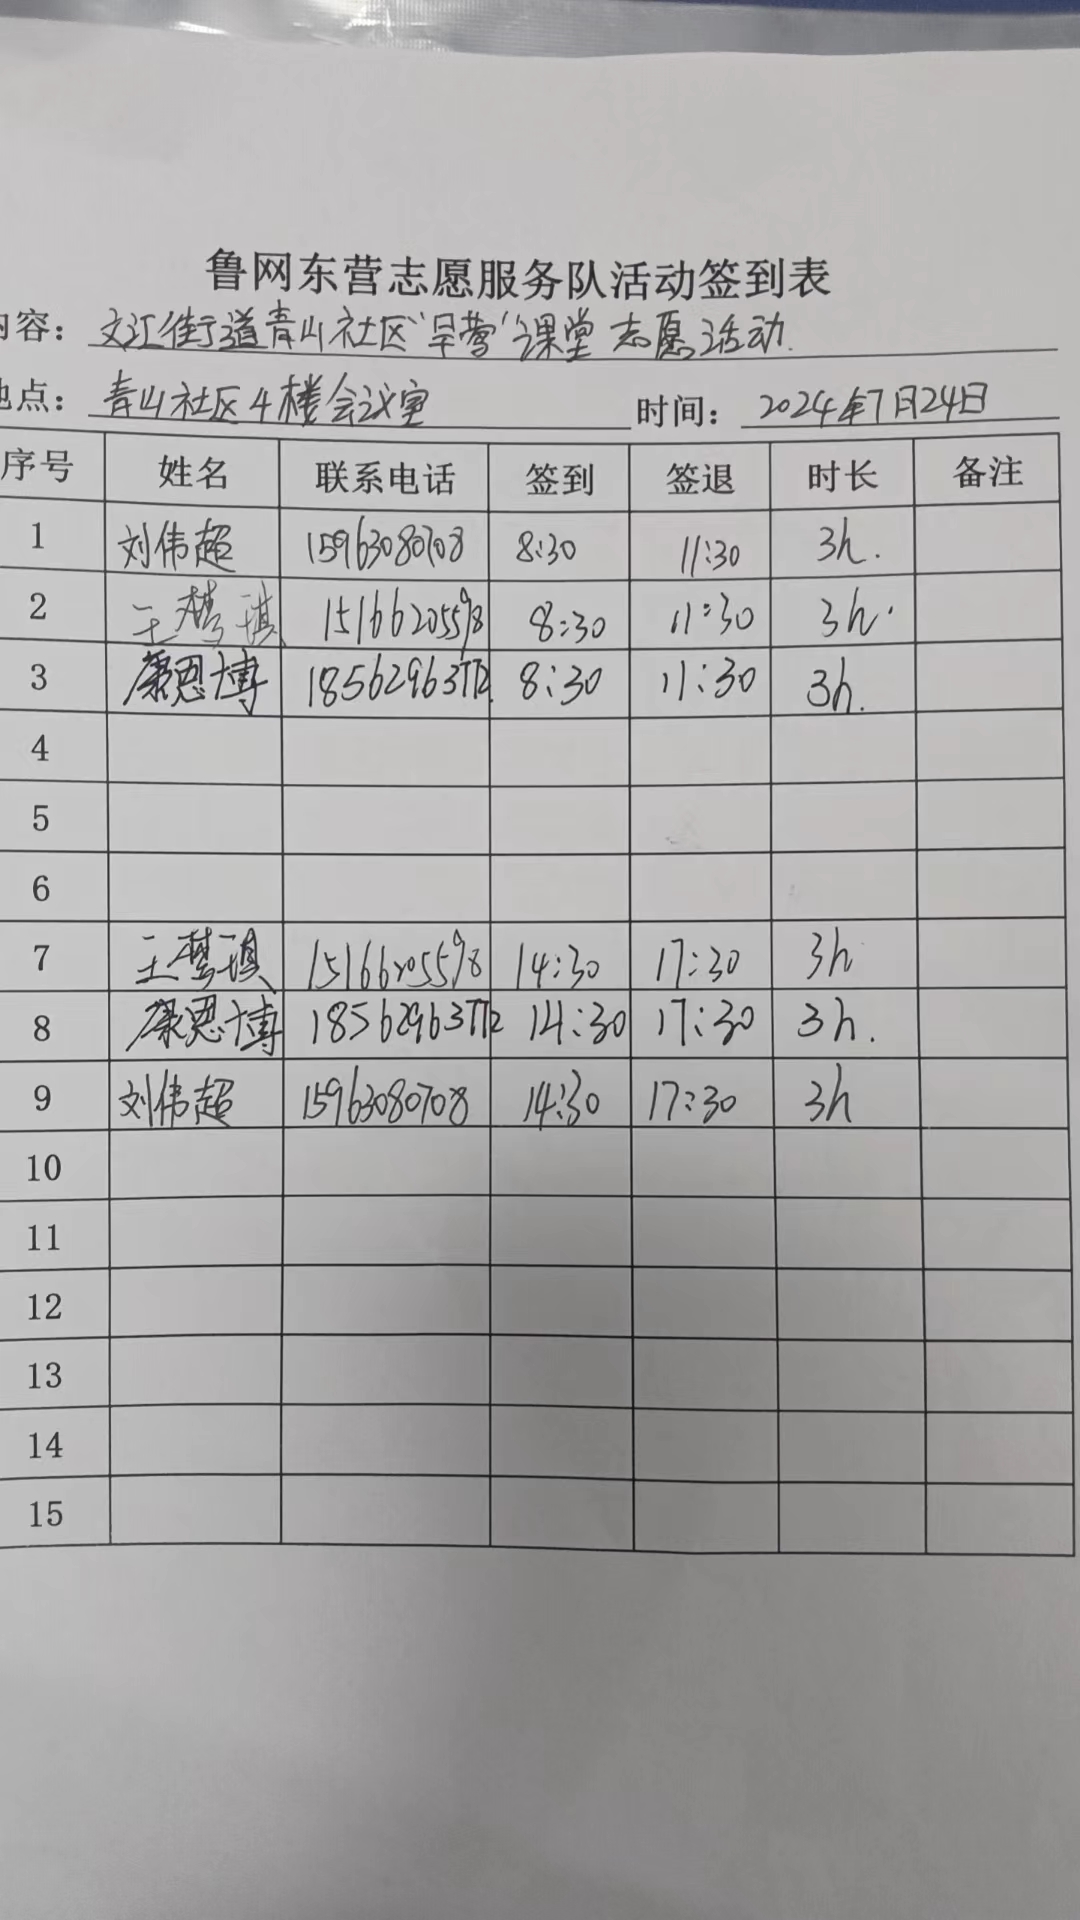 鲁网东营志愿服务队活动签到表
内容：文汇街道青山社区“早营”课堂 志愿活动.
地点：青山社区4楼会议室 时间：2024年7月24日
序号 姓名 联系电话 签到 签退 时长 备注
1 刘伟超 15963080708 8:30 11:30 3h.
2 王梦琪 15166205598 8:30 11:30 3h.
3 康恩博 18562963772 8:30 11:30 3h.
4
5
6
7 王梦琪 15166205598 14:30 17:30 3h
8 康恩博 18562963772 14:30 17:30 3h.
9 刘伟超 15963080708 14:30 17:30 3h
10
11
12
13
14
15